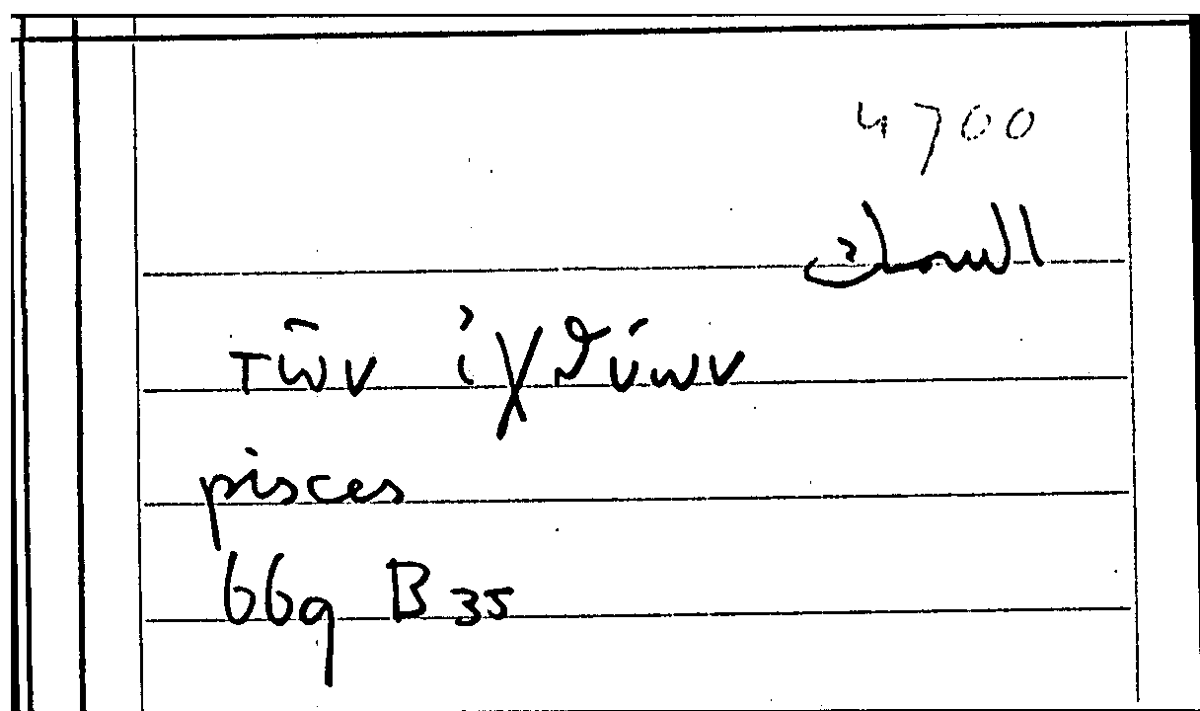 4700
السمك
τῶν ἰχθύων
pisces
669 B 35